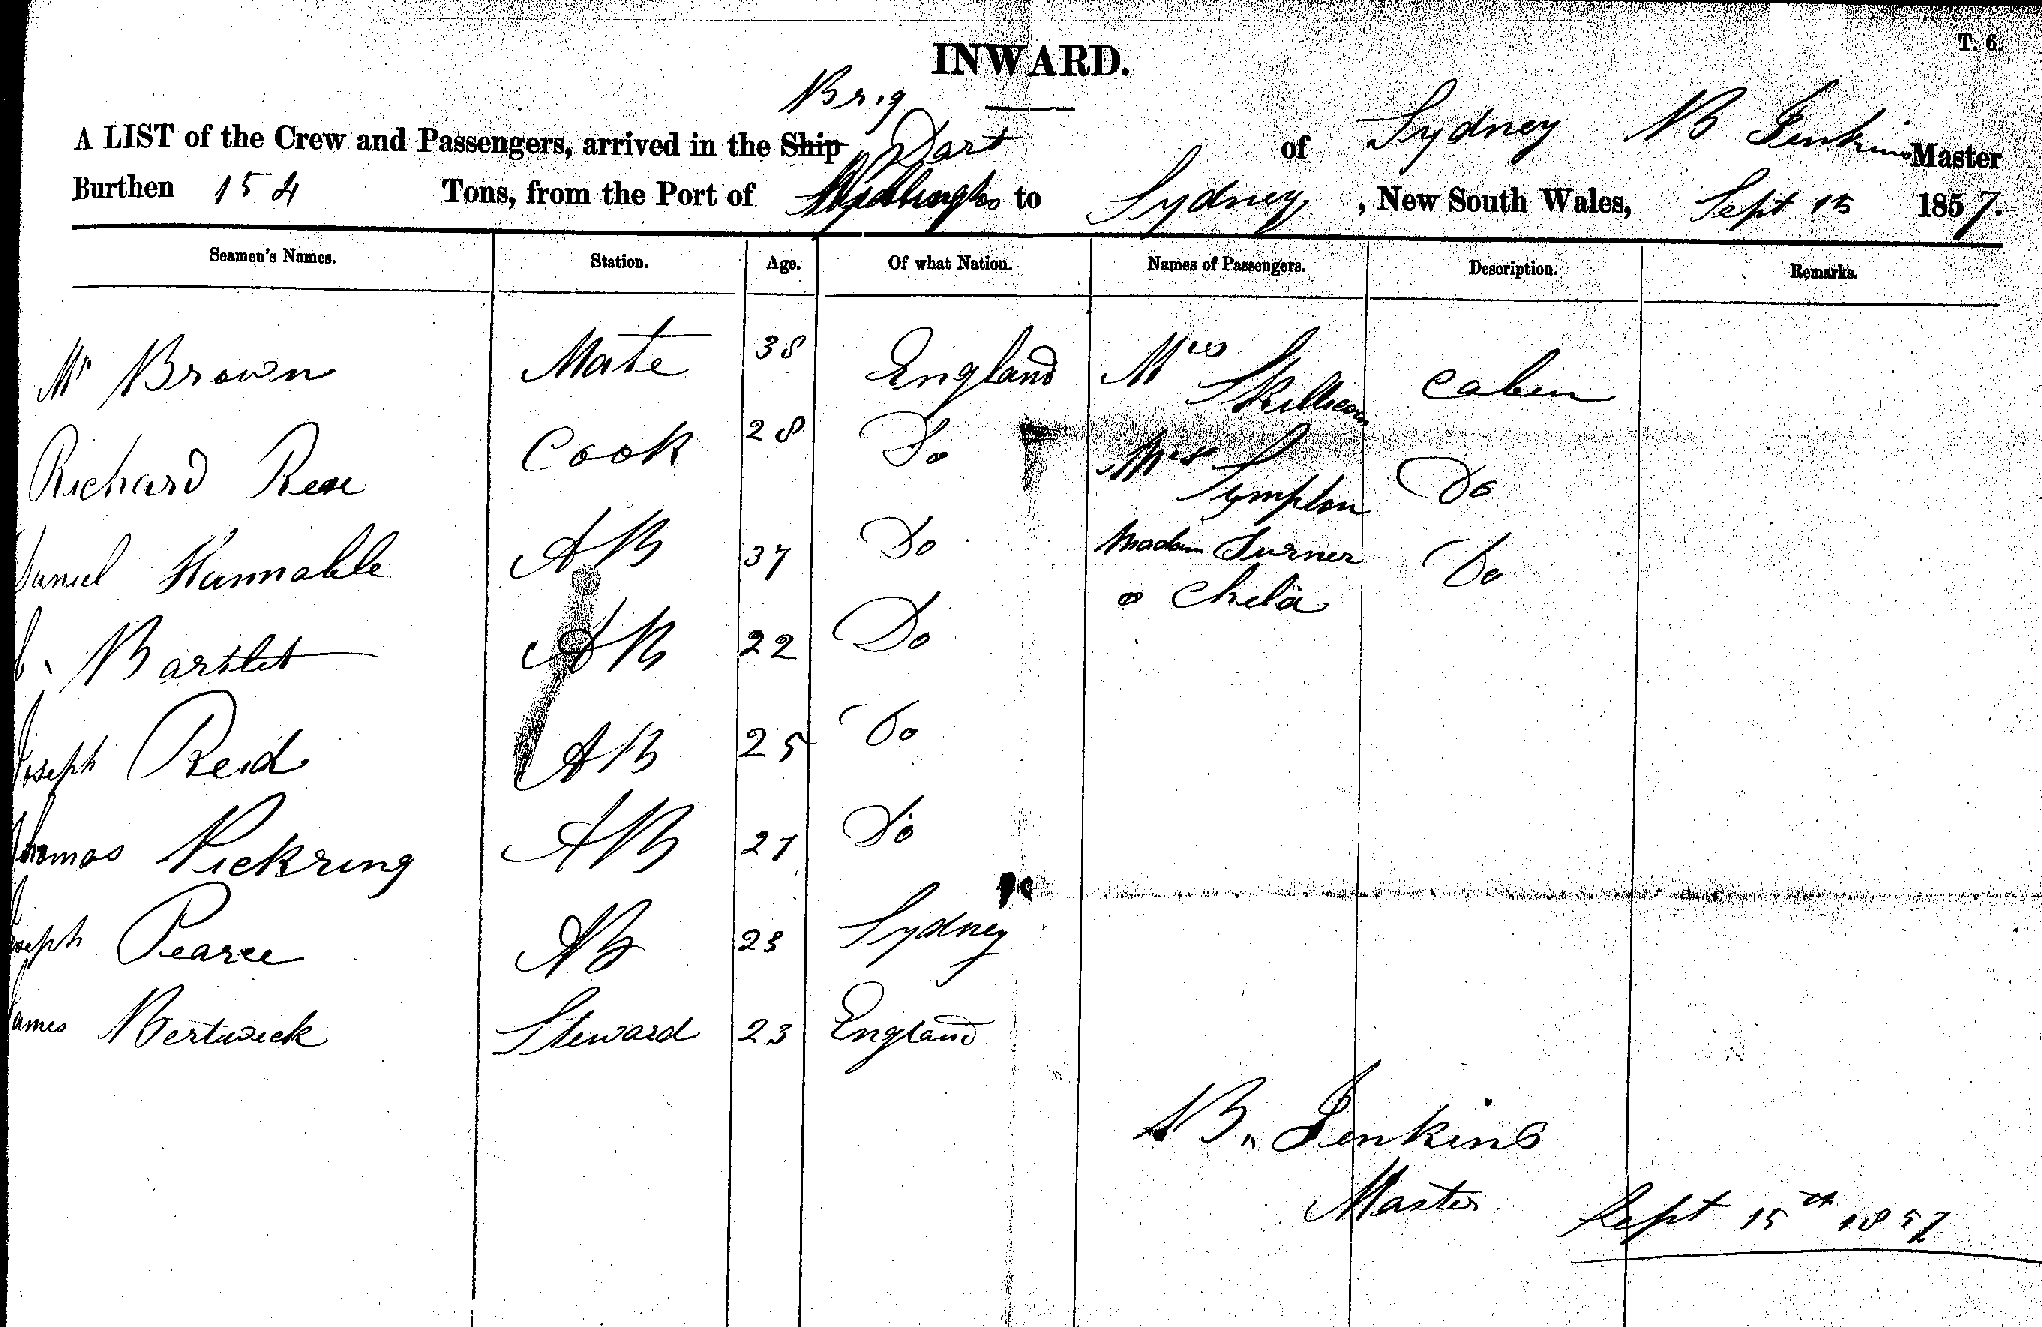 T. 6.
INWARD.
Brig
A LIST of the Crew and Passengers, arrived in the Ship Dart of Sydney B Jenkins Master
Burthen 154 Tons, from the Port of to Sydney, New South Wales, Sept 15 1857.
Seamen's Names. Station. Age. Of what Nation. Names of Passengers. Description. Remarks.
Mr Brown Mate 38 England Mrs Cabin
Richard Cook 28 Do Mrs Sympson Do
Daniel Hannable AB 37 Do Madam Turner Do
& Child
Bartlet AB 22 Do
Joseph Reid AB 25 Do
Thomas Pickring AB 27 Do
Joseph Pearce AB 23 Sydney
James Bertwick Steward 23 England
B. Jenkins
Master
Sept 15th 1857